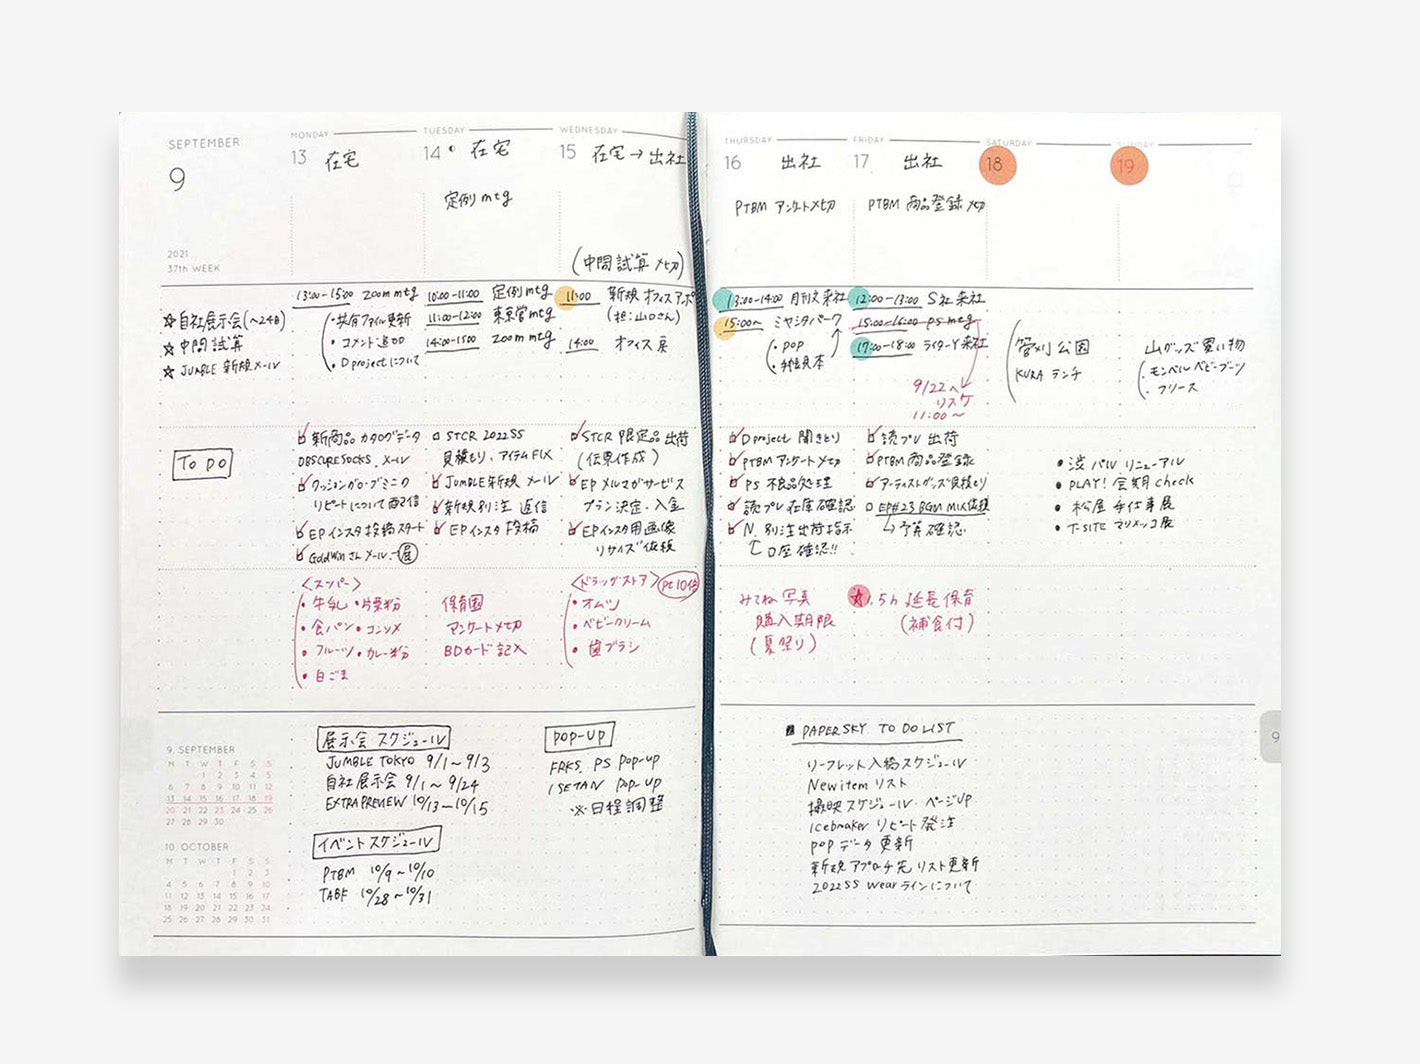 SEPTEMBER
9
2021
37th WEEK
MONDAY
13 在宅
TUESDAY
14 在宅
定例 mtg
WEDNESDAY
15 在宅→出社
(中間試算 〆切)
THURSDAY
16 出社
PTBM アンケート〆切
FRIDAY
17 出社
PTBM 商品登録 〆切
SATURDAY
18
SUNDAY
19
☆自社展示会(~24日)
☆中間試算
☆JUMBLE 新規メール
13:00-15:00 zoom mtg
・共有ファイル更新
・コメント追加
・D projectについて
10:00-11:00 定例mtg
11:00-12:00 東京営mtg
14:00-15:00 zoom mtg
11:00 新規 オフィスアポ
(担:山口さん)
14:00 オフィス戻
13:00-14:00 月刊文来社
15:00~ ミヤシタパーク
・POP
・手直見本
12:00-13:00 S社 来社
15:00-16:00 PS mtg
17:00-18:00 ライターY来社
9/22へ
リスケ
11:00~
菅刈公園
KURA ランチ
山グッズ 買い物
・モンベル ベビーブーツ
・フリース
TO DO
新商品 カタログデータ
OBSCURE SOCKS. メール
クッショングローブミニク
リピートについて配信
EPインスタ投稿スタート
GoldWinさんメール→展
STCR 2022SS
見積もり、アイテムFIX
JUMBLE新規 メール
新規別注 返信
EPインスタ 投稿
STCR 限定品 出荷
(伝票作成)
EP メルマガサービス
プラン決定・入金
EPインスタ用画像
リサイズ依頼
D project 聞きとり
PTBM アンケート〆切
PS 不良品処理
読プレ 在庫確認
N. 別注出荷指示
口座確認!!
読プレ 出荷
PTBM商品登録
アーティストグッズ見積もり
EP#23 BGM MIX依頼
予算確認
• 渋パル リニューアル
• PLAY! 会期 check
• 松屋 手仕事展
• T-SITE マリメッコ展
<スーパー>
・牛乳 ・片栗粉
・食パン ・コンソメ
・フルーツ ・カレー粉
・白ごま
保育園
アンケート〆切
BDカード 記入
<ドラッグストア> Pt10倍
・オムツ
・ベビークリーム
・歯ブラシ
みてね 写真
購入期限
(夏祭り)
☆1.5h 延長保育
(補食付)
9. SEPTEMBER
M T W T F S S
1 2 3 4 5
6 7 8 9 10 11 12
13 14 15 16 17 18 19
20 21 22 23 24 25 26
27 28 29 30
10. OCTOBER
M T W T F S S
1 2 3
4 5 6 7 8 9 10
11 12 13 14 15 16 17
18 19 20 21 22 23 24
25 26 27 28 29 30 31
展示会 スケジュール
JUMBLE TOKYO 9/1~9/3
自社展示会 9/1~9/24
EXTRA PREVIEW 10/13~10/15
イベントスケジュール
PTBM 10/9~10/10
TABF 10/28~10/31
POP-UP
FRKS. PS POP-UP
ISETAN POP-UP
※日程調整
■ PAPERSKY TO DO LIST
リーフレット入稿スケジュール
New item リスト
撮映スケジュール・ページUP
Icebreaker リピート発注
POPデータ更新
新規アプローチ先 リスト更新
2022SS wearラインについて
9